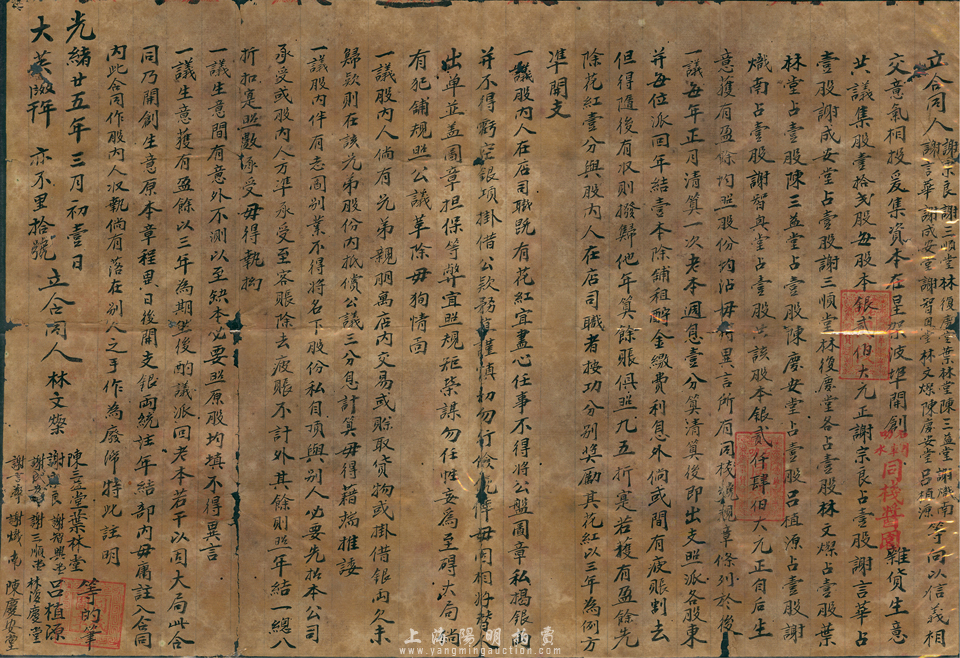 立合同人謝宗良 謝三順堂 林復慶堂 葉林堂 陳三益堂 謝熾南
謝言華 謝成安堂 謝智興堂 林文燦 陳慶安堂 呂植源 等向以信義相
交意氣相投爰集資本在星 波埠開創 同棧醬園 雜貨生意
共議集股壹拾弍股每股本銀弍佰大元正謝宗良占壹股謝言華占
壹股謝成安堂占壹股謝三順堂林復慶堂各占壹股林文燦占壹股葉
林堂占壹股陳三益堂占壹股陳慶安堂占壹股呂植源占壹股謝
熾南占壹股謝智興堂占壹股共該股本銀貳仟肆佰大元正自后生
意獲有盈餘均照股份均沾毋得異言所有同棧號規章條列於後
一議每年正月清算一次老本週息壹分算清算後即出支照派各股東
并每位派回年結壹本除鋪租 金繳費利息外倘或間有疲賬剔去
但得隨後有收則撥歸他年算餘賬俱照九五折寔若獲有盈餘先
除花紅壹分與股內人在店司職者按功分別獎勵其花紅以三年為例方
準開支
一議股內人在店司職既有花紅宜盡心任事不得將公盤圖章私揭銀両
并不得虧空銀項掛借公款務宜謹慎切勿行 毋同相將替人
出單並蓋圖章担保等弊宜照規矩 謀勿任性妄為至碍大局倘
有犯鋪規照公議革除毋狗情面
一議股內人倘有兄弟親朋寓店內交易或賒取貨物或掛借銀両久未
歸款則在該兄弟股份內抵償公議三分息計算毋得藉端推諉
一議股內伴有志圖別業不得將名下股份私自頂與別人必要先招本公司
承受或股內人方準承受至客賬除去疲賬不計外其餘則照年結一總八
折扣寔照數承受毋得執拗
一議生意間有意外不測以至缺本必要照原股均填不得異言
一議生意獲有盈餘以三年為期 後酌議派回老本若干以固大局此合
同乃開創生意原本章程異日後開支銀両統注年結部內毋庸註入合同
內此合同作股內人收執倘有落在別人之手作為廢 特此註明
光緒廿五年三月初壹日 立合同人 林文燦 陳三益堂 葉林堂
謝宗良 謝智興堂 呂植源 等的筆
大英 亦不里拾號 謝成安堂 謝三順堂 林復慶堂
謝言華 謝熾南 陳慶安堂
上海陽明拍賣
www.yangmingauction.com